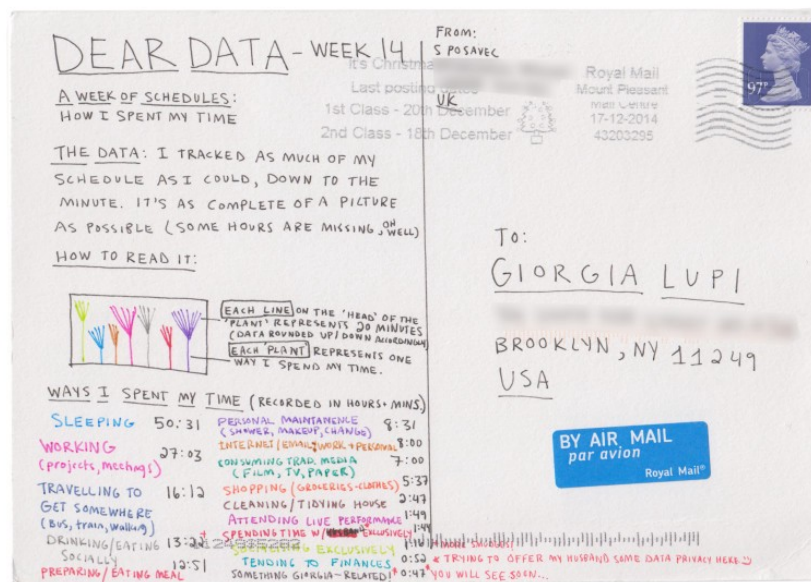 DEAR DATA - WEEK 14
A WEEK OF SCHEDULES:
HOW I SPENT MY TIME
THE DATA: I TRACKED AS MUCH OF MY
SCHEDULE AS I COULD, DOWN TO THE
MINUTE. IT'S AS COMPLETE OF A PICTURE
AS POSSIBLE (SOME HOURS ARE MISSING, OH WELL)
HOW TO READ IT:
EACH LINE ON THE 'HEAD' OF THE
'PLANT' REPRESENTS 20 MINUTES
(DATA ROUNDED UP/DOWN ACCORDINGLY)
EACH 'PLANT' REPRESENTS ONE
WAY I SPEND MY TIME.
WAYS I SPENT MY TIME (RECORDED IN HOURS + MINS.)
SLEEPING 50:31
WORKING 27:03
(projects, meetings)
TRAVELLING TO 16:12
GET SOMEWHERE
(Bus, train, walking)
DRINKING/EATING
SOCIALLY
PREPARING/EATING MEAL 12:51
PERSONAL MAINTANENCE 8:31
(SHOWER, MAKEUP, CHANGE)
INTERNET/EMAIL: WORK + PERSONAL 8:00
CONSUMING TRAD. MEDIA 7:00
(FILM, TV, PAPER)
SHOPPING (GROCERIES + CLOTHES) 5:37
CLEANING/TIDYING HOUSE 2:47
ATTENDING LIVE PERFORMANCE 1:49
SPENDING TIME W/ EXCLUSIVELY
EXCLUSIVELY
TENDING TO FINANCES 0:52
SOMETHING GIORGIA-RELATED! 0:47
* TRYING TO OFFER MY HUSBAND SOME DATA PRIVACY HERE
YOU WILL SEE SOON...
FROM:
S POSAVEC
UK
It's Christma
Last posting dates
1st Class - 20th December
2nd Class - 18th December
Royal Mail
Mount Pleasant
Mail Centre
17-12-2014
43203295
97P
TO:
GIORGIA LUPI
BROOKLYN, NY 11249
USA
BY AIR MAIL
par avion
Royal Mail®